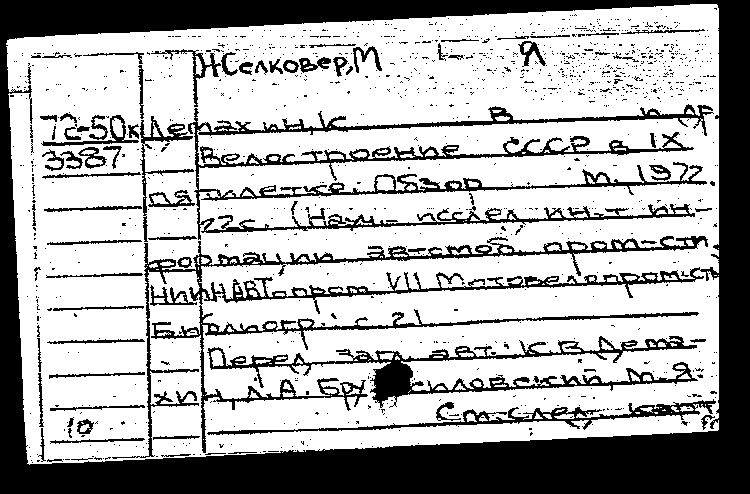 Желковер, М Я
72-50к Демахин, К В и др.
3387 Велостроение СССР в IX
пятилетке. Обзор М., 1972.
22с. (Науч.- исслед ин-т ин-
формации автомоб. пром-сти.
НИИНАВТопром VII Мотовелопром-сть
Библиогр.: с 21
Перед загл. авт.: К.В. Дема-
хин, Л.А. Брусиловский, М.Я.
См. след. карт.
10